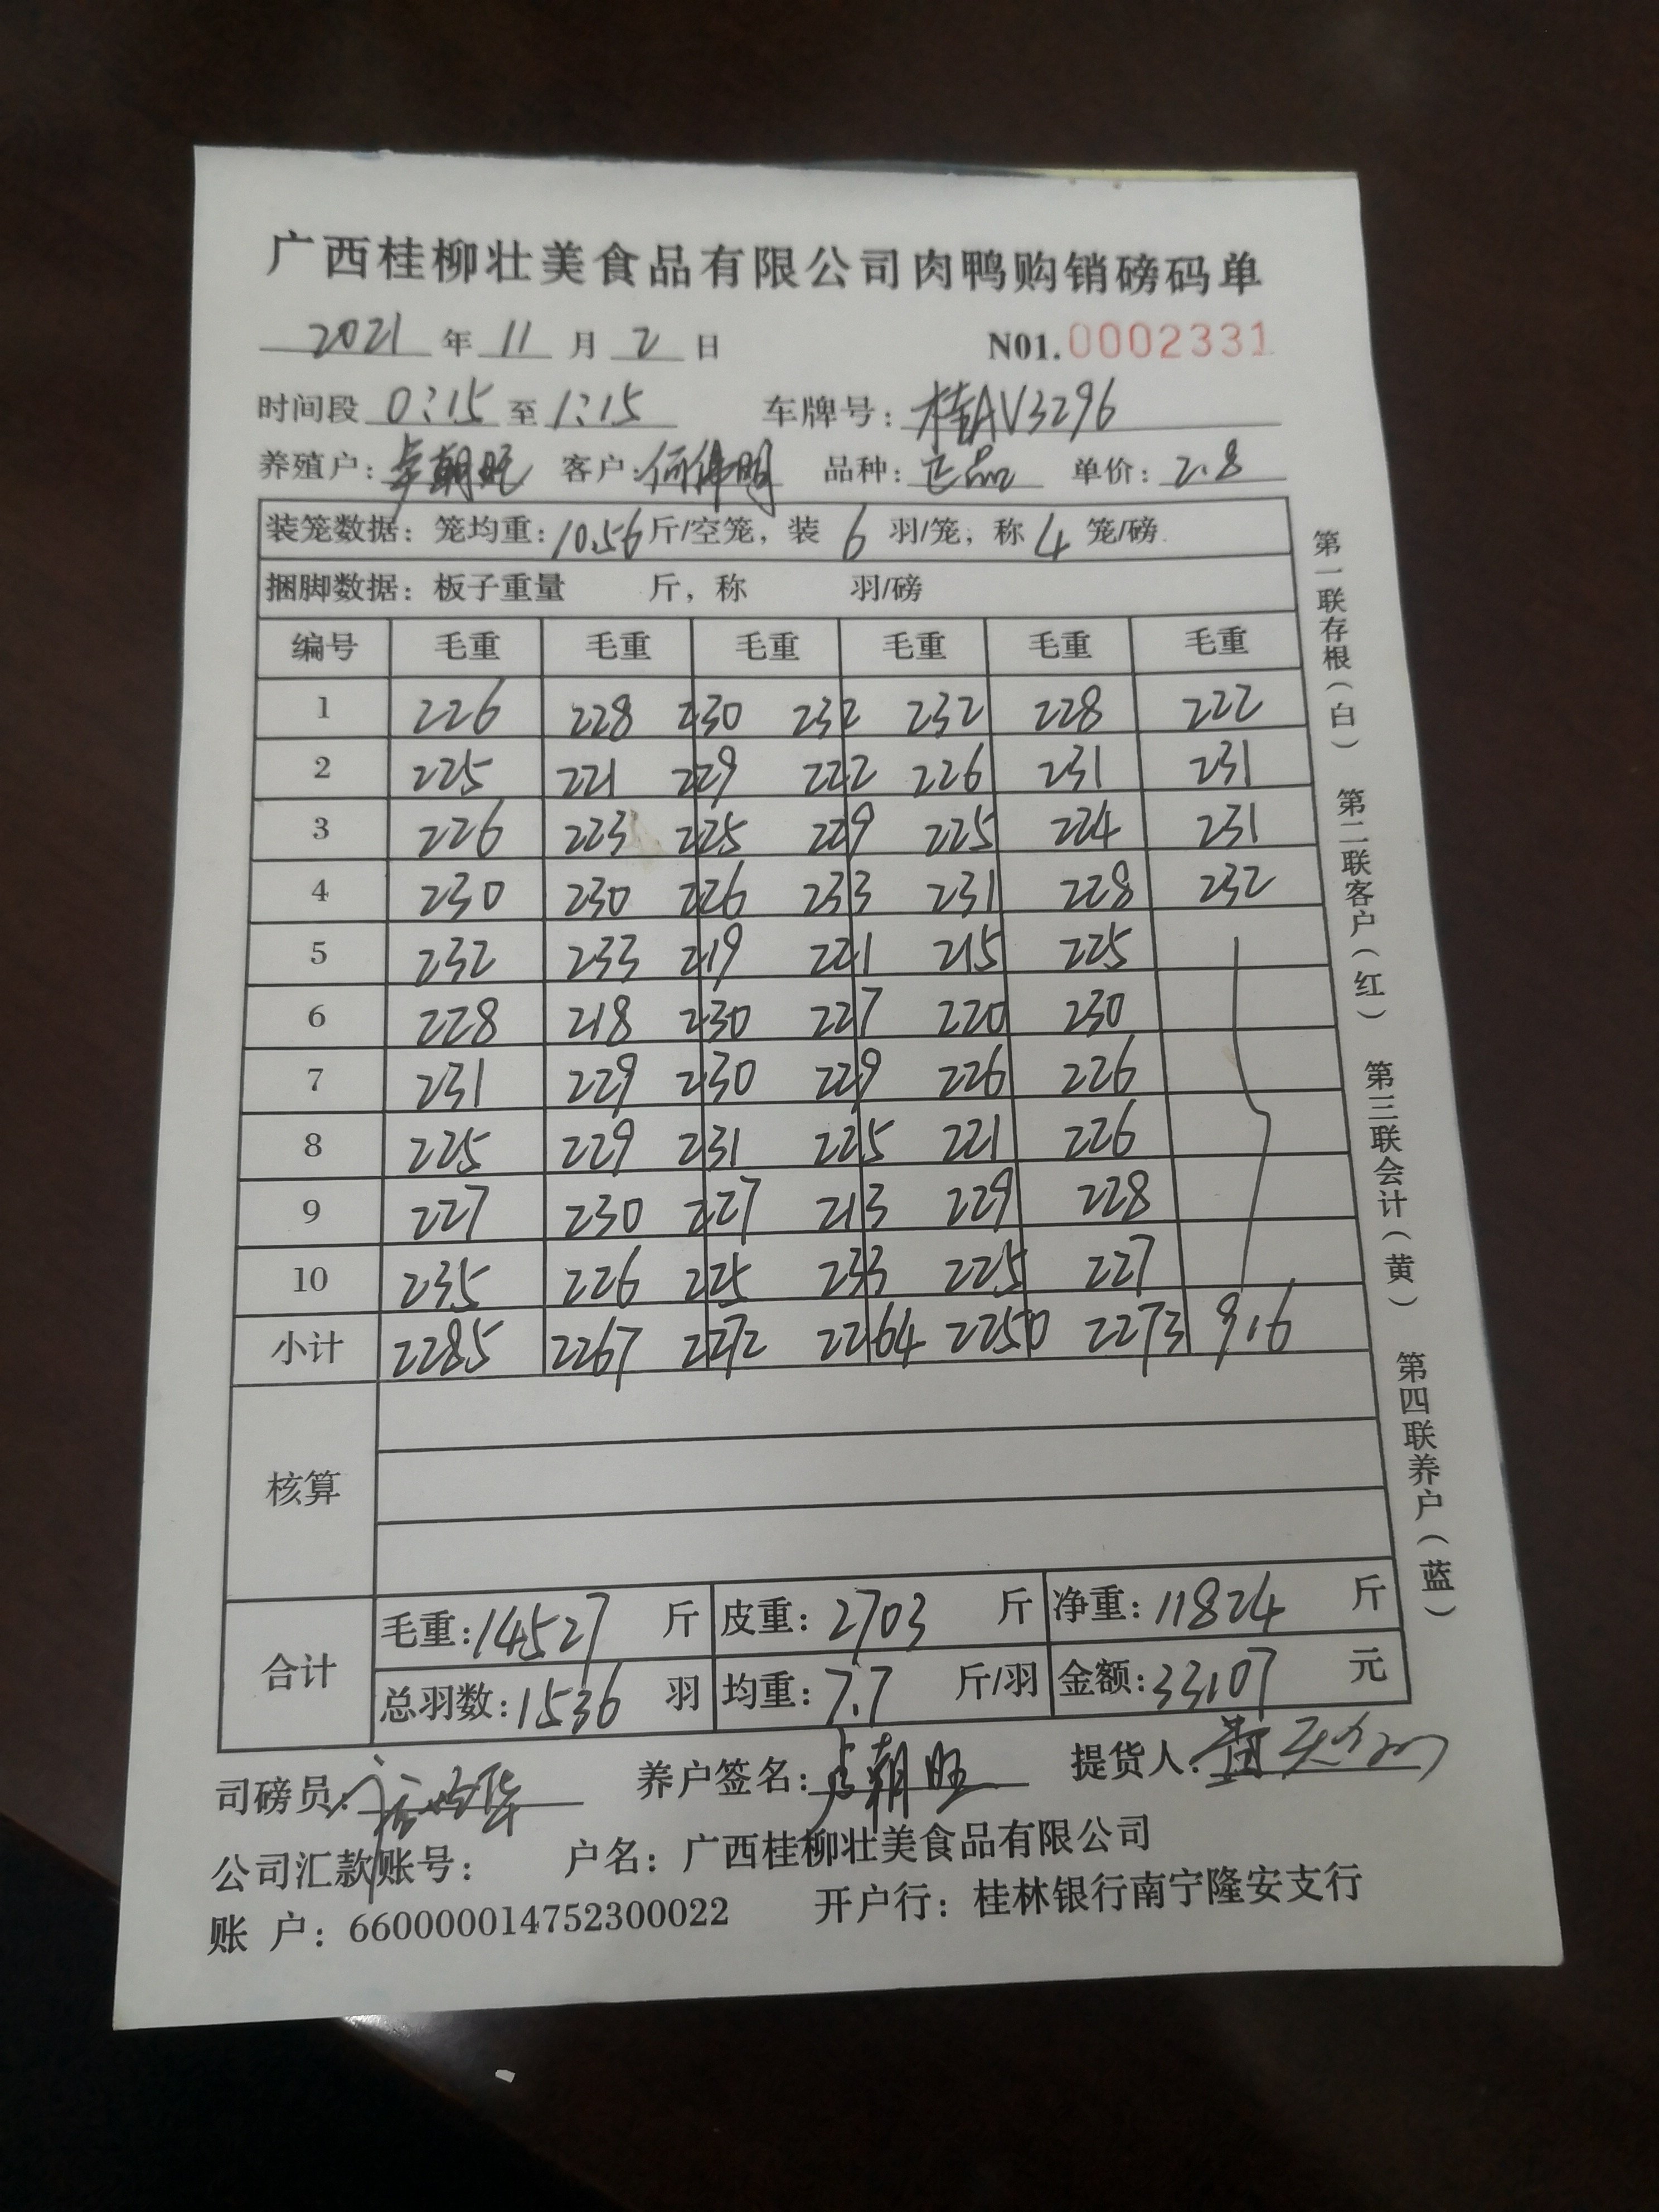 广西桂柳壮美食品有限公司肉鸭购销磅码单
2021 年 11 月 2 日 N01.0002331
时间段 0:15 至 1:15 车牌号: 桂AV3296
养殖户: 卢朝旺 客户: 何伟明 品种: 正品 单价: 2.8
装笼数据: 笼均重: 10.56 斤/空笼, 装 6 羽/笼, 称 4 笼/磅.
捆脚数据: 板子重量 斤, 称 羽/磅
编号 毛重 毛重 毛重 毛重 毛重 毛重
1 226 228 230 232 232 228 222
2 225 221 229 222 226 231 231
3 226 223 225 229 225 224 231
4 230 230 226 233 231 228 232
5 232 233 219 221 215 225
6 228 218 230 227 220 230
7 231 229 230 229 226 226
8 225 229 231 225 221 226
9 227 230 227 213 229 228
10 235 226 225 233 225 227
小计 2285 2267 2272 2264 2250 2273 916
核算
合计
毛重: 14527 斤 皮重: 2703 斤 净重: 11824 斤
总羽数: 1536 羽 均重: 7.7 斤/羽 金额: 33107 元
司磅员: 养户签名: 卢朝旺 提货人: 黄
公司汇款账号: 户名: 广西桂柳壮美食品有限公司
账 户: 660000014752300022 开户行: 桂林银行南宁隆安支行
第一联存根(白) 第二联客户(红) 第三联会计(黄) 第四联养户(蓝)